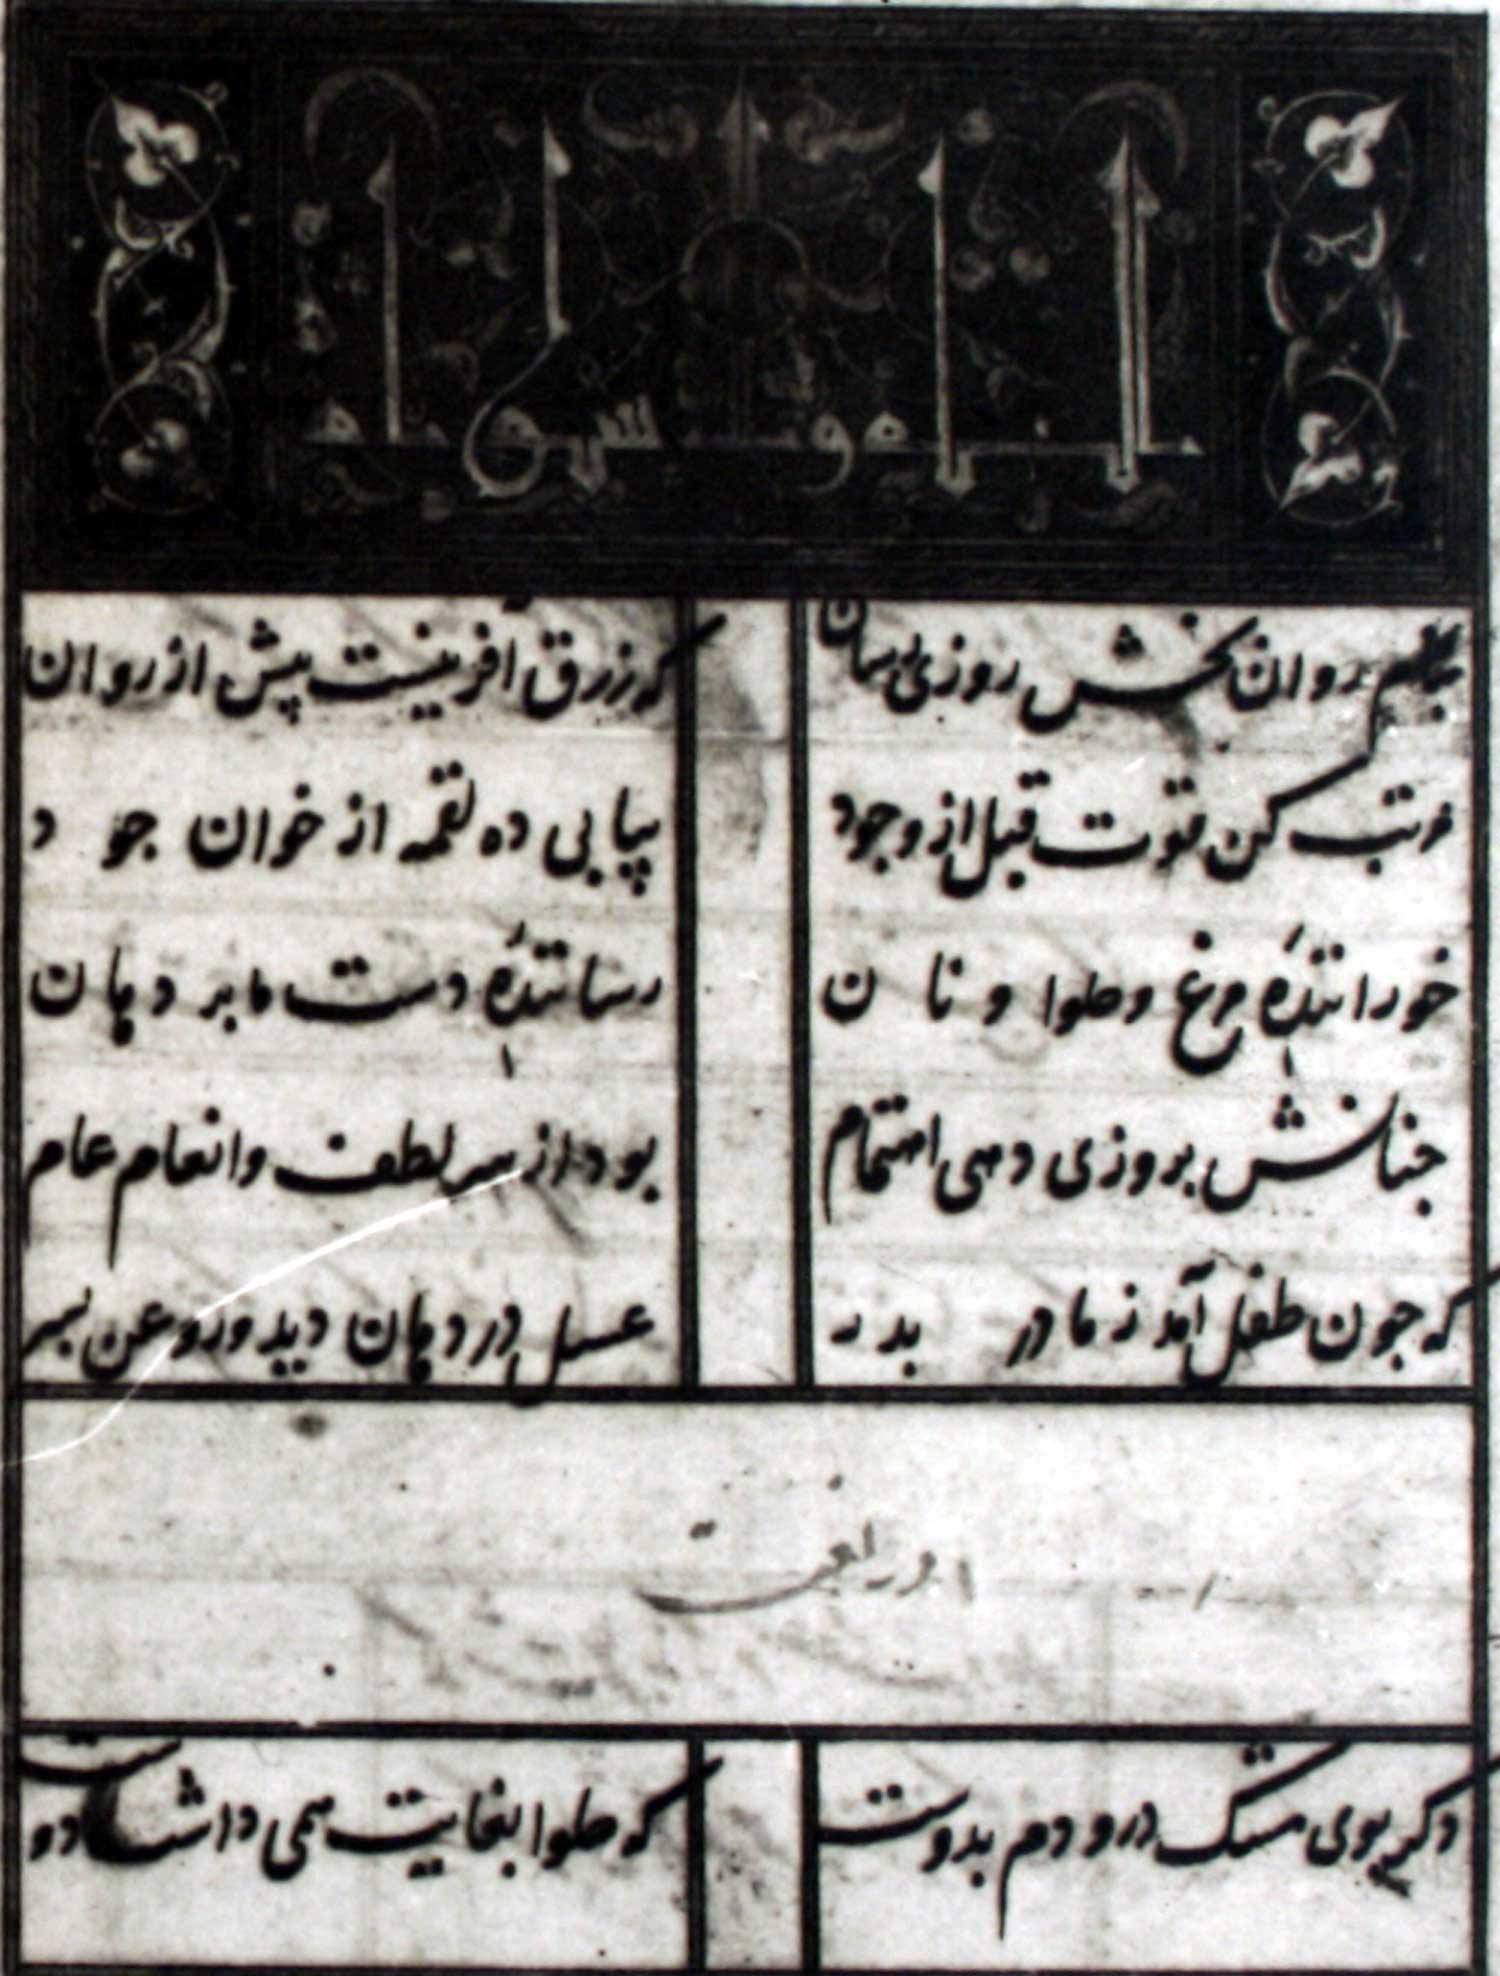 بنام روان بخش روزی رسان
که رزق آفرینست پیش از روان
مرتب کن قوت قبل از وجود
پیاپی ده لقمه از خوان جود
خورانندهٔ مرغ و حلوا و نان
رسانندهٔ دست ما بر دهان
جنانش بروزی دهی اهتمام
بود از سر لطف و انعام عام
که جون طفل آمد ز مادر بدر
عسل در دهان دید و روغن بسر
دکر بوی مشک درو دم بدوست
که حلوا بغایت همی داشت دوست